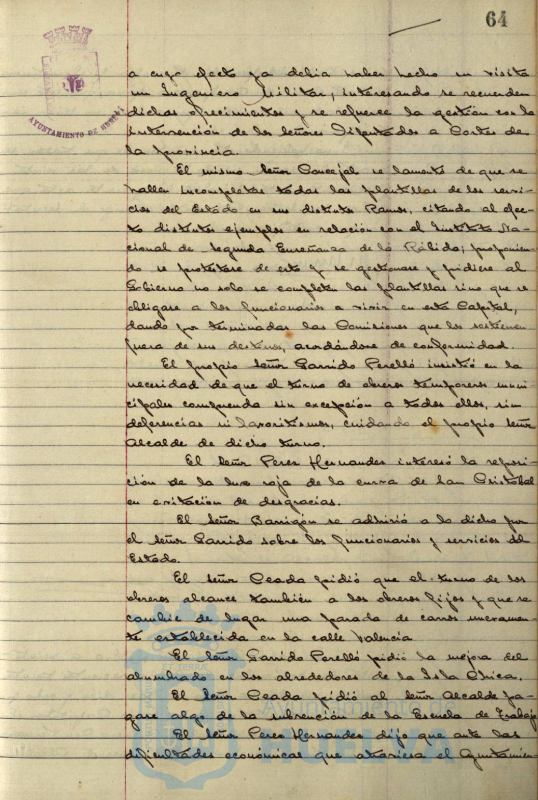 64
AYUNTAMIENTO DE HUELVA
a cuyo efecto ya debia haber hecho su visita
un Ingeniero Militar, interesando se recuerden
dichos ofrecimientos y se refuerce la gestión con la
intervención de los señores Diputados a Cortes de
la provincia.
El mismo señor Concejal se lamentó de que se
hallen incompletas todas las plantillas de los servi-
cios del Estado en sus distintos Ramos, citando al efec-
to distintos ejemplos en relación con el Instituto Na-
cional de Segunda Enseñanza de la Rábida; proponien-
do se protestase de esto y se gestionase y pidiese al
Gobierno no solo se completen las plantillas sino que se
obligase a los funcionarios a vivir en esta Capital,
dando por terminadas las Comisiones que los sostienen
fuera de sus destinos, acordándose de conformidad.
El propio señor Garrido Perelló insistió en la
necesidad de que el turno de obreros temporeros muni-
cipales comprenda sin excepción a todos ellos, sin
deferencias ni favoritismos, cuidando el propio señor
Alcalde de dicho turno.
El señor Perez Hernandez interesó la reposi-
ción de la luz roja de la curva de San Cristóbal
en evitación de desgracias.
El señor Barrigón se adhirió a lo dicho por
el señor Garrido sobre los funcionarios y servicios del
Estado.
El señor Ceada pidió que el turno de los
obreros alcance también a los obreros fijos y que se
cambie de lugar una parada de carros nuevamen-
te establecida en la calle Valencia
El señor Garrido Perelló pidió la mejora del
alumbrado en los alrededores de la Isla Chica.
El señor Ceada pidió al señor Alcalde pa-
gase algo de la subvención de la Escuela de Trabajo
El señor Perez Hernandez dijo que ante las
dificultades económicas que atraviesa el Ayuntamien-
Ayuntamiento de
HUELVA